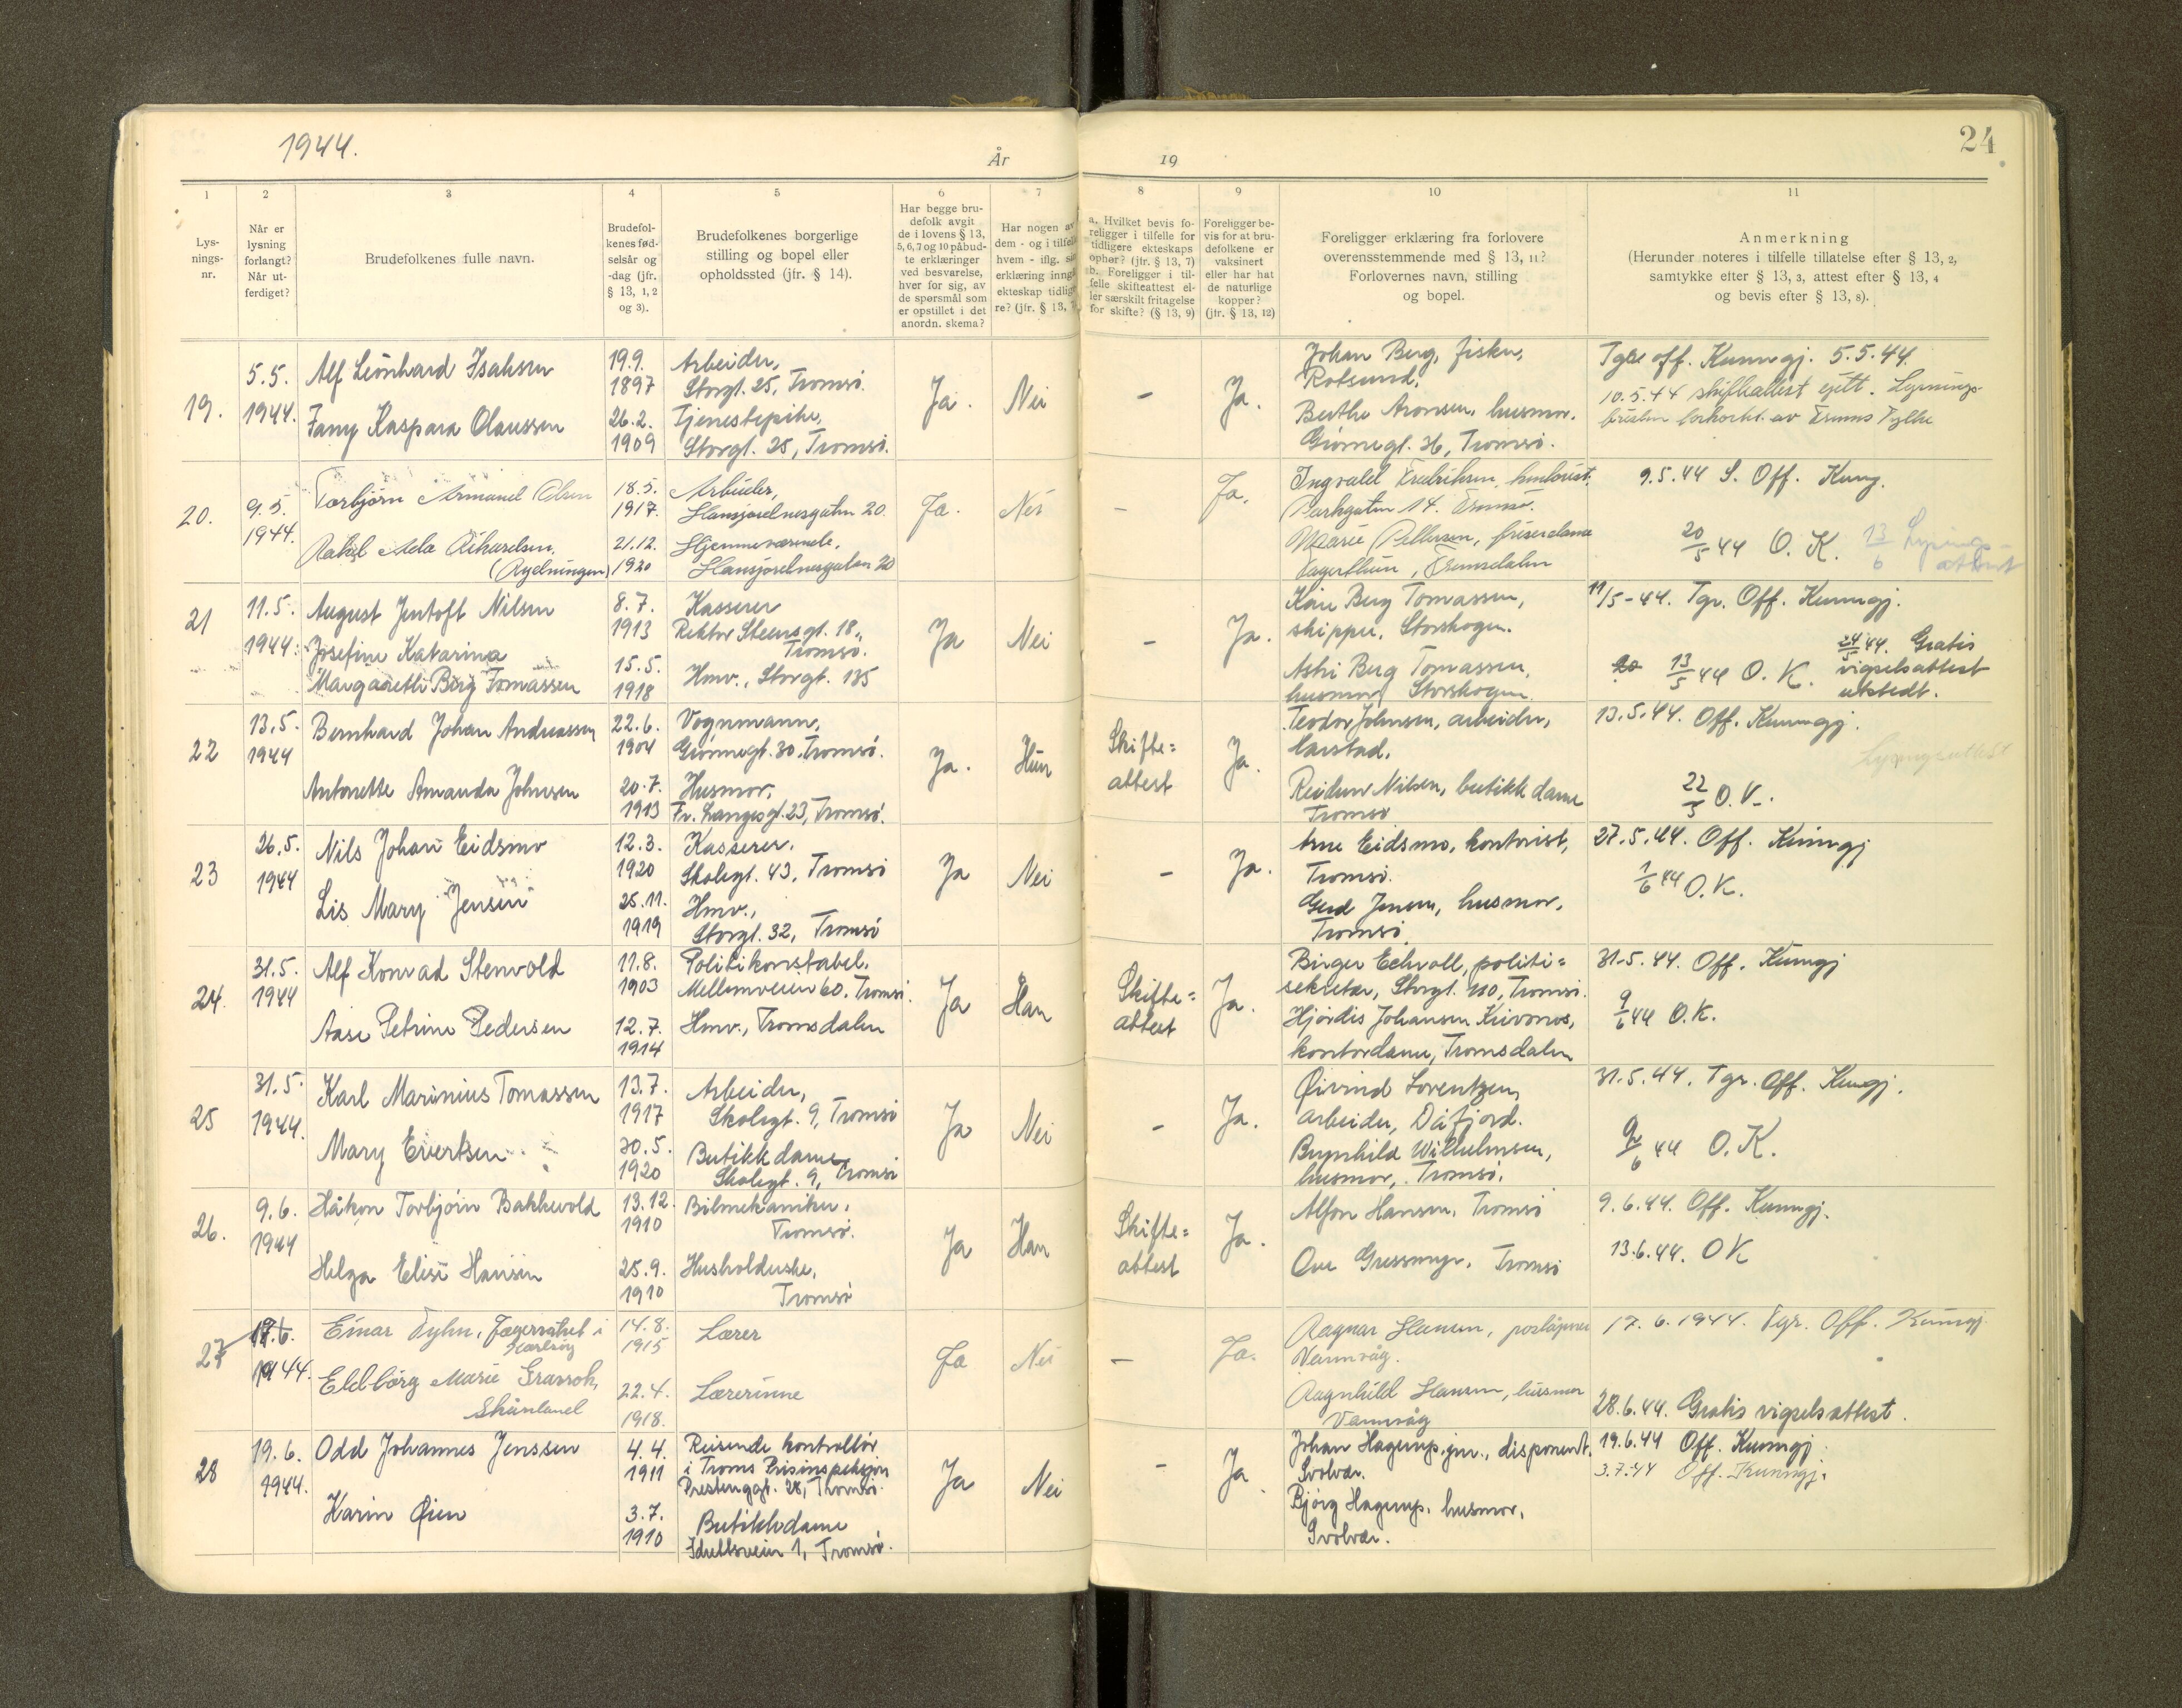 1944.
År
19
24
1
2
3
4
5
6
7
8
9
10
11
Lys-
nings-
nr.
Når er
lysning
forlangt?
Når ut-
ferdiget?
Brudefolkenes fulle navn.
Brudefol-
kenes fød-
selsår og
-dag (jfr.
§ 13, 1, 2
og 3).
Brudefolkenes borgerlige
stilling og bopel eller
opholdssted (jfr. § 14).
Har begge bru-
defolk avgit
de i lovens § 13,
5, 6, 7 og 10 påbud-
te erklæringer
ved besvarelse,
hver for sig, av
de spørsmål som
er opstillet i det
anordn. skema?
Har nogen av
dem - og i tilfelle
hvem - iflg. sin
erklæring inngå
ekteskap tidlige
re? (jfr. § 13, 7
a. Hvilket bevis fo-
religger i tilfelle for
tidligere ekteskaps
opher? (jfr. § 13, 7)
b. Foreligger i til-
felle skifteattest el-
ler særskilt fritagelse
for skifte? (§ 13, 9)
Foreligger be-
vis for at bru-
defolkene er
vaksinert
eller har hat
de naturlige
kopper?
(jfr. § 13, 12)
Foreligger erklæring fra forlovere
overensstemmende med § 13, 11?
Forlovernes navn, stilling
og bopel.
Anmerkning
(Herunder noteres i tilfelle tillatelse efter § 13, 2,
samtykke efter § 13, 3, attest efter § 13, 4
og bevis efter § 13, 8).
19.
5.5.
1944.
Alf Leonhard Isaksen
Fany Kaspara Olaussen
19.9.
1897
26.2.
1909
Arbeider,
Storgt. 25, Tromsø.
Tjenestepike,
Storgt. 25, Tromsø.
Ja.
Nei
-
Ja.
Johan Berg, fisker,
Rotsund.
Berthe Aronsen, husmor.
Grønnegt. 36, Tromsø.
off. Kunngj. 5.5.44.
10.5.44 skifteattest ejett. Lysnings-
av Troms Fylke
20.
9.5.
1944.
Torbjørn Armand Olsen
Rakel Ada Rikardsen.
18.5.
1917.
21.12.
1920
Arbeider,
Hansjordnesgaten 20.
Hjemmeværende,
Hansjordnesgaten 20
Ja.
Nei
-
Ja.
Ingvald Fredriksen,
Parkgaten 14. Tromsø.
Marie Pettersen, friserdame
Fagerheim, Tromsdalen
9.5.44 S. Off. Kung.
20/5 44 O.K.
13/6 Lysnings-
attest
21
11.5.
1944.
August Jentoft Nilsen
Josefine Katarina
Margarethe Berg Tomassen
8.7.
1913
15.5.
1918
Kasserer
Rektor Steensgt. 18,
Tromsø.
Hmv., Storgt. 135
Ja
Nei
-
Ja.
Kåre Berg Tomassen,
skipper, Storskogen.
Astri Berg Tomassen,
husmor, Storskogen.
11/5-44. Tgr. Off. Kunngj.
13/5 44 O.K.
24/5 44. Gratis
vigselsattest
utstedt.
22
13.5.
1944
Bernhard Johan Andreassen
Antonette Amanda Johnsen
22.6.
1904
20.7.
1913
Vognmann,
Grønnegt. 30, Tromsø.
Husmor,
Fr. Langesgt. 23, Tromsø.
Ja.
Hun
Skifte=
attest
Ja.
Teodor Johnsen, arbeider,
Reidun Nilsen, butikkdame
Tromsø
13.5.44. Off. Kunngj.
Lysingsattest
22/5 O.K.
23
26.5.
1944
Nils Johan Eidsmo
Lis Mary Jensen
12.3.
1920
25.11.
1919
Kasserer.
Skolegt. 43, Tromsø
Hmv.,
Storgt. 32, Tromsø
Ja
Nei
-
Ja.
Arne Eidsmo, kontorist,
Tromsø.
Gerd Jensen, husmor,
Tromsø.
27.5.44. Off. Kunngj
1/6 44 O.K.
24.
31.5.
1944
Alf Konrad Stenvold
Aase Petrine Pedersen
11.8.
1903
12.7.
1914
Politikonstabel.
Mellemveien 60. Tromsø.
Hmv., Tromsdalen
Ja
Han
Skifte=
attest
Ja.
Birger Eckvoll, politi=
sekretær, Storgt. 110, Tromsø.
Hjørdis Johansen
kontordame, Tromsdalen
31.5.44. Off. Kunngj
9/6 44 O.K.
25
31.5.
1944.
Karl Marinius Tomassen
Mary Evertsen
13.7.
1917
30.5.
1920
Arbeider,
Skolegt. 9, Tromsø
Butikkdame
Skolegt. 9, Tromsø
Ja
Nei
-
Ja.
Øivind Lorentzen,
arbeider, Dåfjord.
Brynhild Wilhelmsen,
husmor, Tromsø.
31.5.44. Tgr. Off. Kungj.
9/6 44 O.K.
26.
9.6.
1944
Håkon Torbjørn Bakkevold
Helga Elise Hansen
13.12.
1910
25.9.
1910
Bilmekaniker,
Tromsø.
Husholderske,
Tromsø
Ja
Han
Skifte=
attest
Ja.
Alfon Hansen, Tromsø
Ove Gressmyr, Tromsø
9.6.44. Off. Kunngj.
13.6.44. OK
27
17.6.
1944.
Einar Tyhn, Fagervatnet i
Karlsøy
Eldbørg Marie
Skånland
14.8.
1915
22.4.
1918.
Lærer
Lærerinne
Ja
Nei
-
Ja.
Ragnar Hansen, poståpner
Vannvåg.
Ragnhild Hansen, husmor
Vannvåg
17.6.1944. Tgr. Off. Kunngj.
28.6.44. Gratis vigselsattest.
28
19.6.
1944.
Odd Johannes Jenssen
Karin Øien
4.4.
1911
3.7.
1910
Reisende kontrollør
i Troms Prisinspeksjon
Prestenggt. 28, Tromsø.
Butikkdame
Idrettsveien 1, Tromsø.
Ja
Nei
-
Ja
Johan Hagerup, jnr., disponent.
Svolvær.
Bjørg Hagerup, husmor,
Svolvær.
19.6.44 Off. Kunngj
3.7.44 Off. Kunngj.